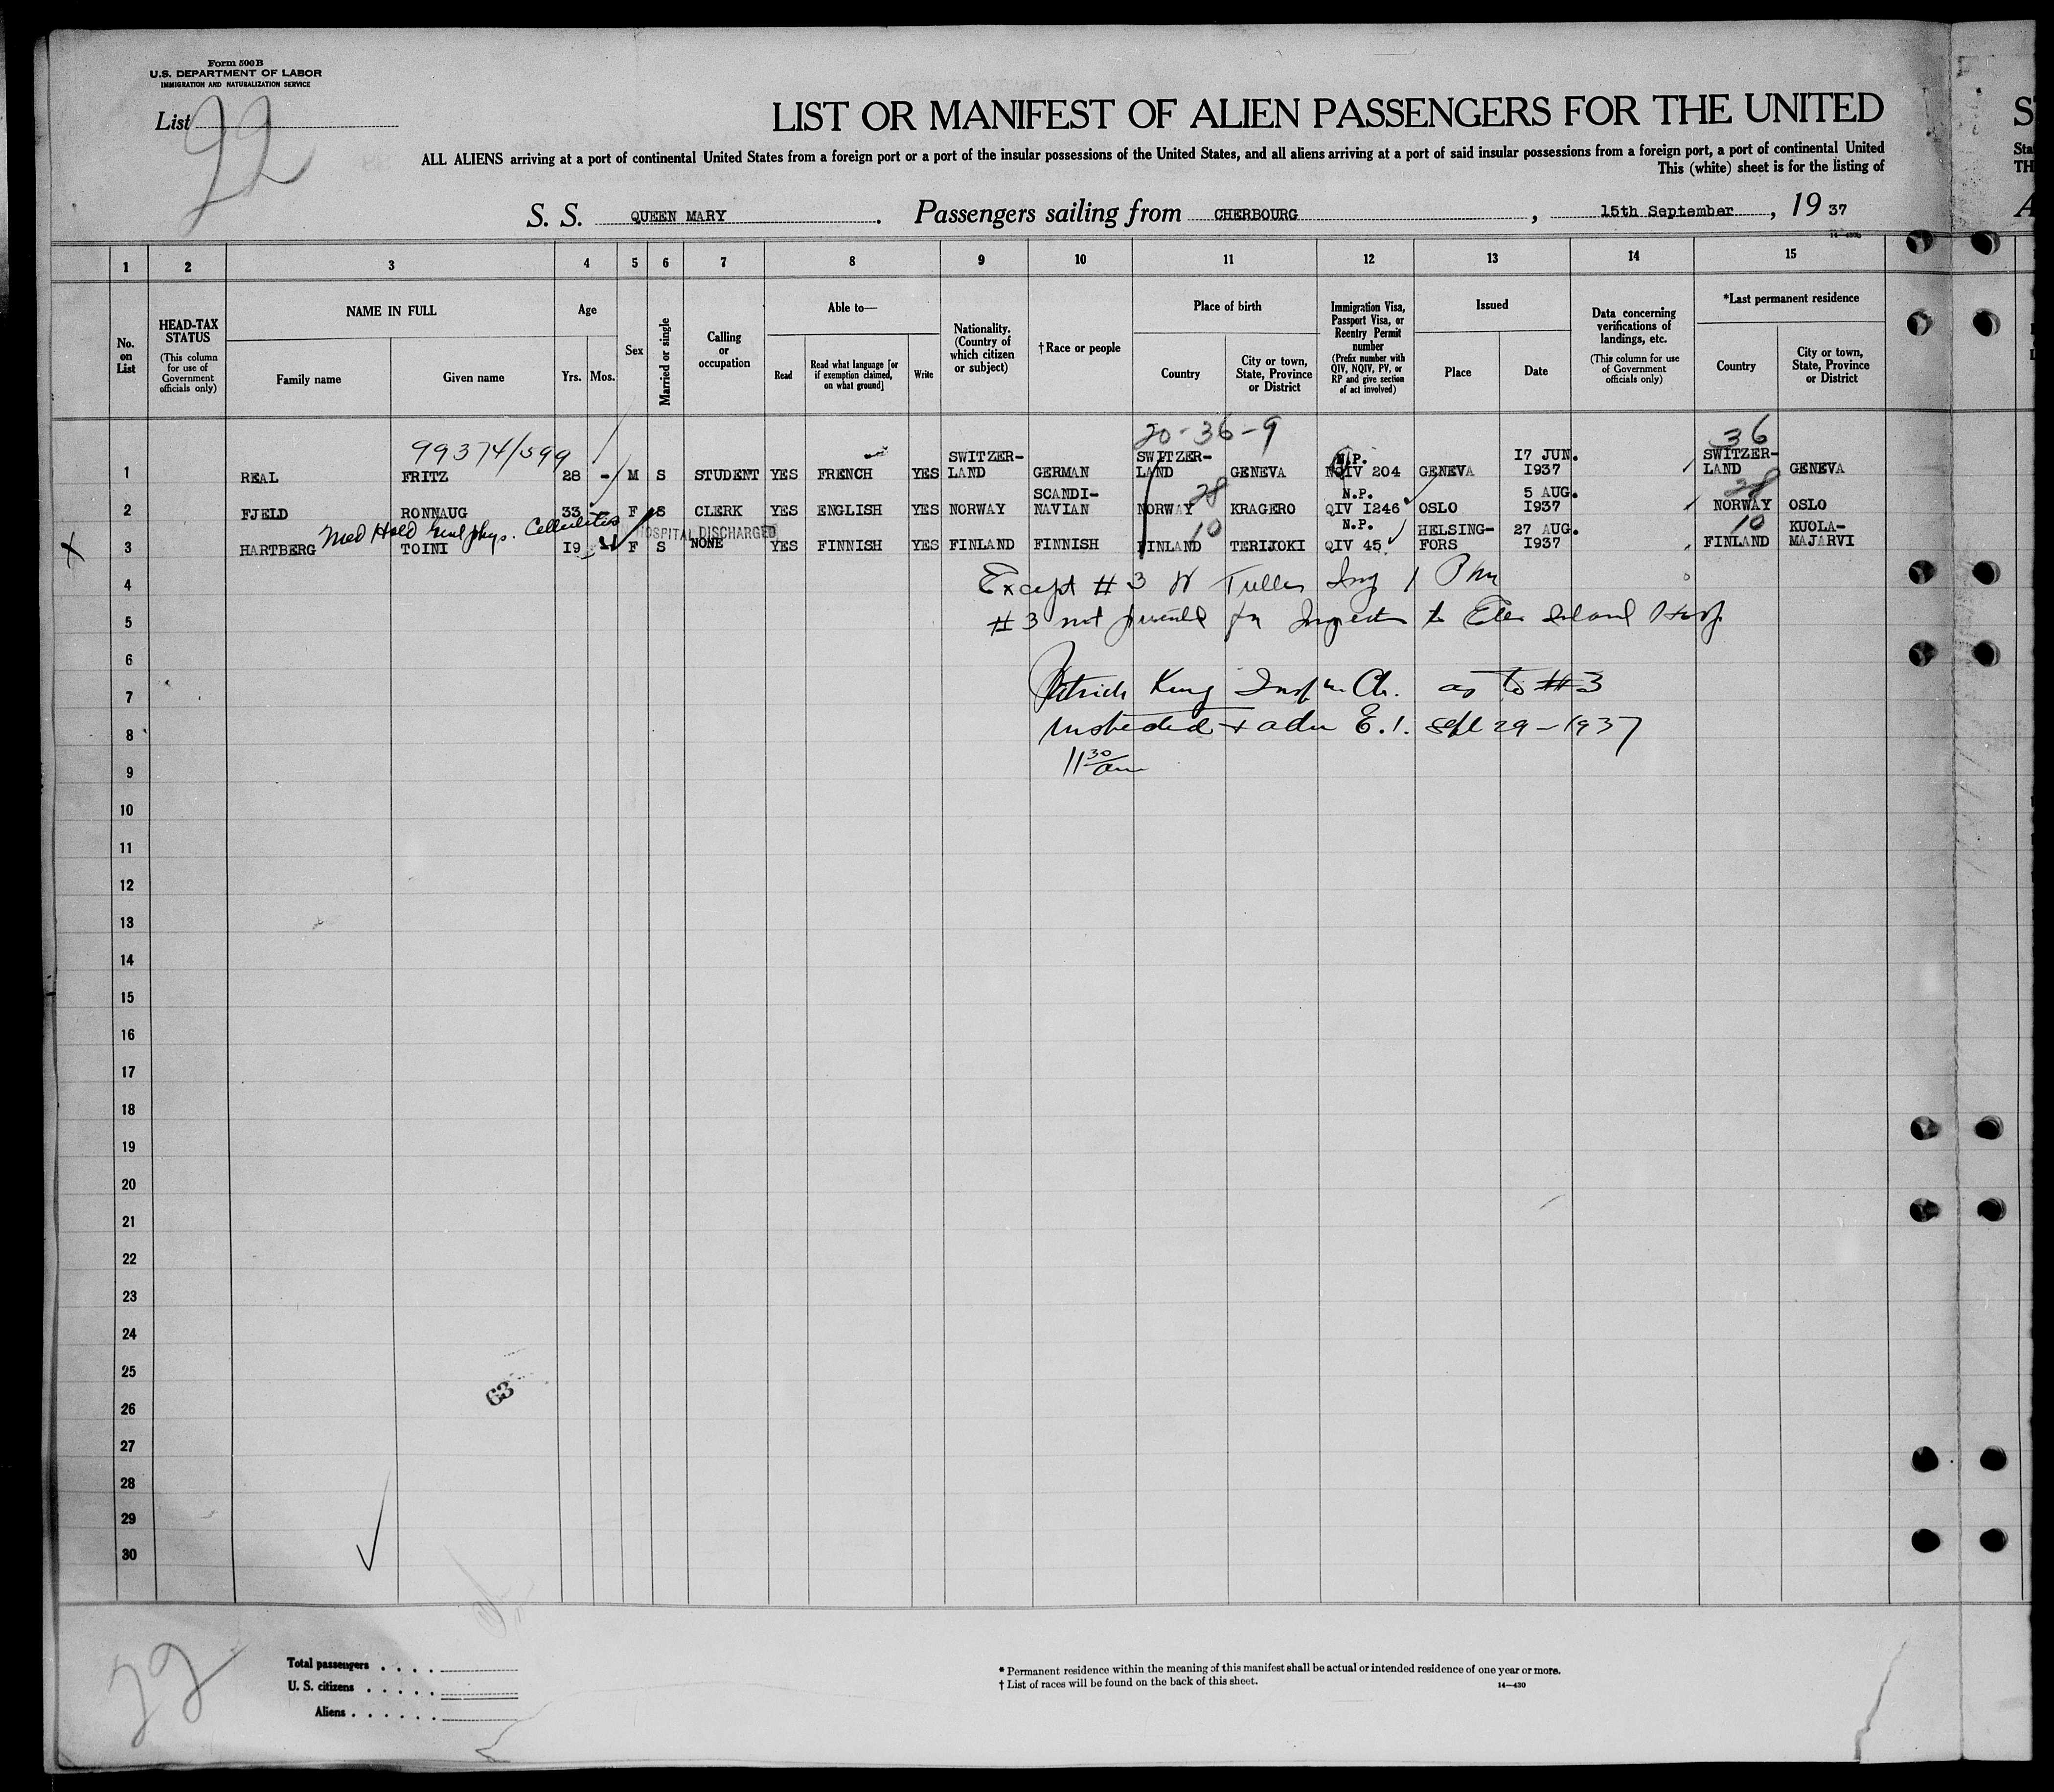 Form 500B
U.S. DEPARTMENT OF LABOR
IMMIGRATION AND NATURALIZATION SERVICE
List 22
LIST OR MANIFEST OF ALIEN PASSENGERS FOR THE UNITED
ALL ALIENS arriving at a port of continental United States from a foreign port or a port of the insular possessions of the United States, and all aliens arriving at a port of said insular possessions from a foreign port, a port of continental United
This (white) sheet is for the listing of
S. S. QUEEN MARY. Passengers sailing from CHERBOURG, 15th September, 19 37
1 2 3 4 5 6 7 8 9 10 11 12 13 14 15
No. on List
HEAD-TAX STATUS (This column for use of Government officials only)
NAME IN FULL
Family name
Given name
Age
Yrs. Mos.
Sex
Married or single
Calling or occupation
Able to—
Read
Read what language [or if exemption claimed, on what ground]
Write
Nationality. (Country of which citizen or subject)
†Race or people
Place of birth
Country
City or town, State, Province or District
Immigration Visa, Passport Visa, or Reentry Permit number (Prefix number with QIV, NQIV, PV, or RP and give section of act involved)
Issued
Place
Date
Data concerning verifications of landings, etc. (This column for use of Government officials only)
*Last permanent residence
Country
City or town, State, Province or District
99374/599 20-36-9 36
1 REAL FRITZ 28 - M S STUDENT YES FRENCH YES SWITZER-LAND GERMAN SWITZER-LAND GENEVA N.P. NQIV 204 GENEVA 17 JUN. 1937 SWITZER-LAND GENEVA
28 28
2 FJELD RONNAUG 33 - F S CLERK YES ENGLISH YES NORWAY SCANDI-NAVIAN NORWAY KRAGERO N.P. QIV 1246 OSLO 5 AUG. 1937 NORWAY OSLO
Med Hold Cellulitis HOSPITAL DISCHARGED 10 10
X 3 HARTBERG TOINI 19 F S NONE YES FINNISH YES FINLAND FINNISH FINLAND TERIJOKI N.P. QIV 45 HELSING-FORS 27 AUG. 1937 FINLAND KUOLA-MAJARVI
4 Except #3
5 #3 not to Ellis Island Hosp
6
7 Patrick King as to #3
8 E.I. Sept 29-1937
9 11 30 am
10
11
12
13
14
15
16
17
18
19
20
21
22
23
24
25
63
26
27
28
29
30
22
Total passengers . . . .
U. S. citizens . . . . .
Aliens . . . . . .
* Permanent residence within the meaning of this manifest shall be actual or intended residence of one year or more.
† List of races will be found on the back of this sheet.
14—430